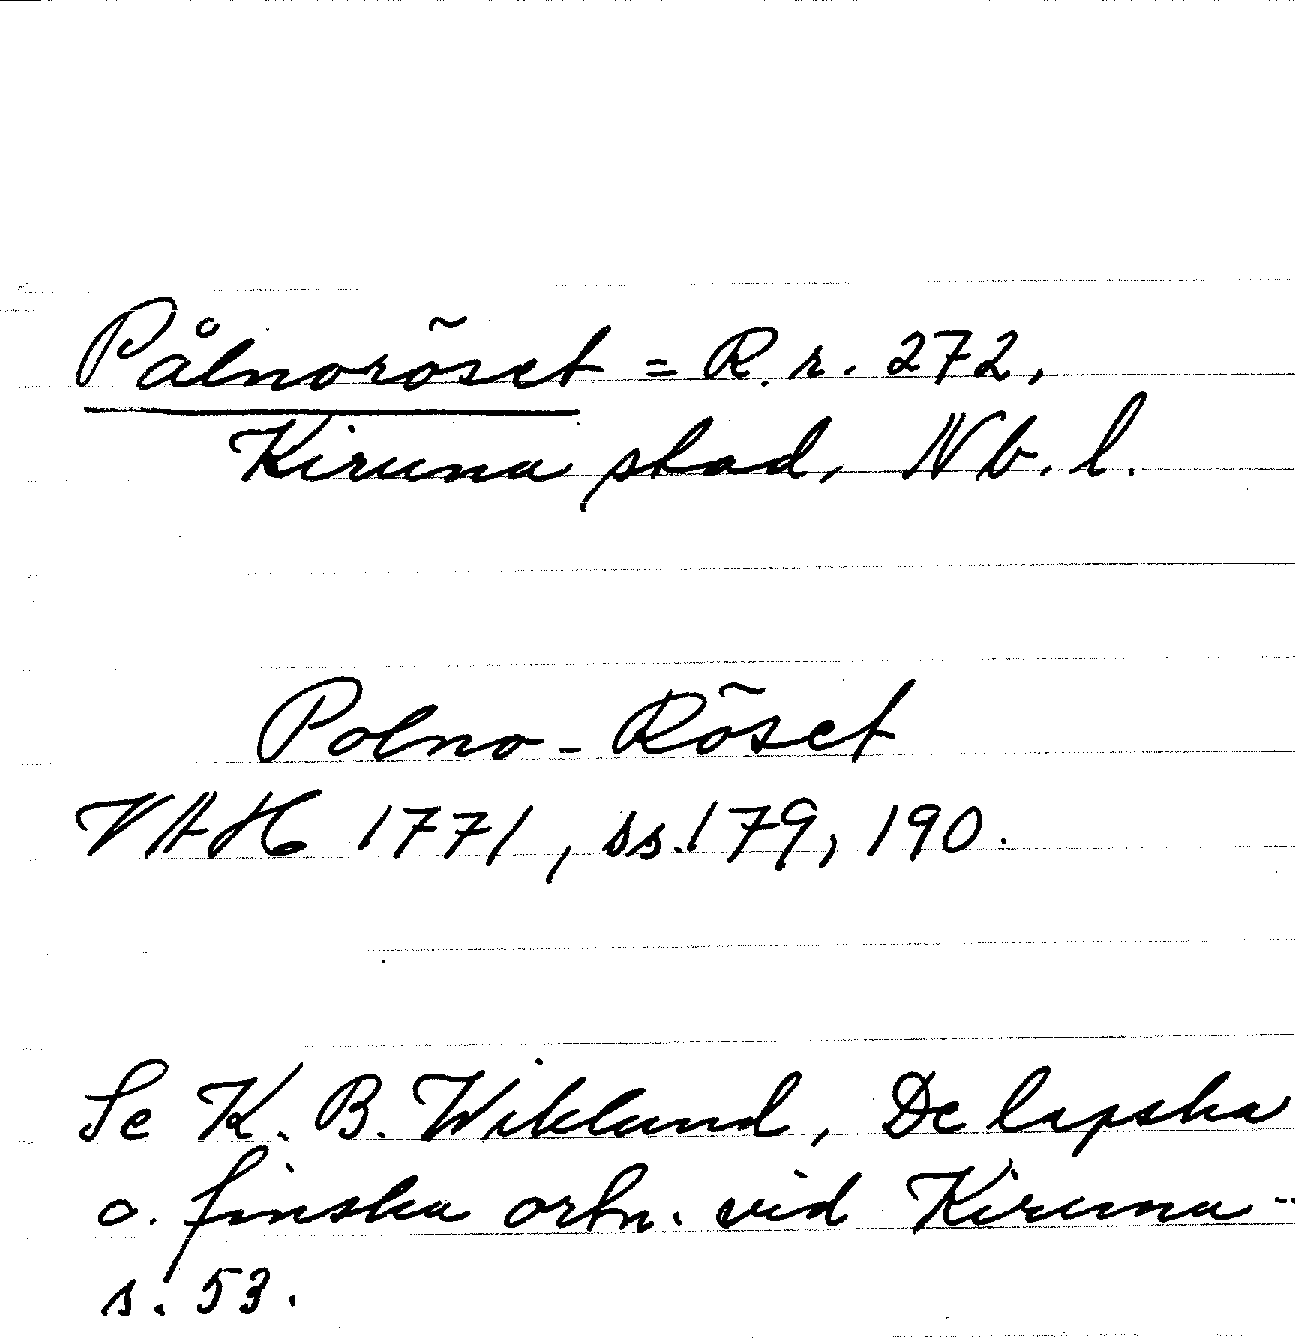 Pålnoröset = R. r. 272,
Kiruna stad, Nb. l.
Polno-Röset
VAH 1771, ss. 179, 190.
Se K. B. Wiklund, De lapska
o. finska ortn. vid Kiruna --
s. 53.